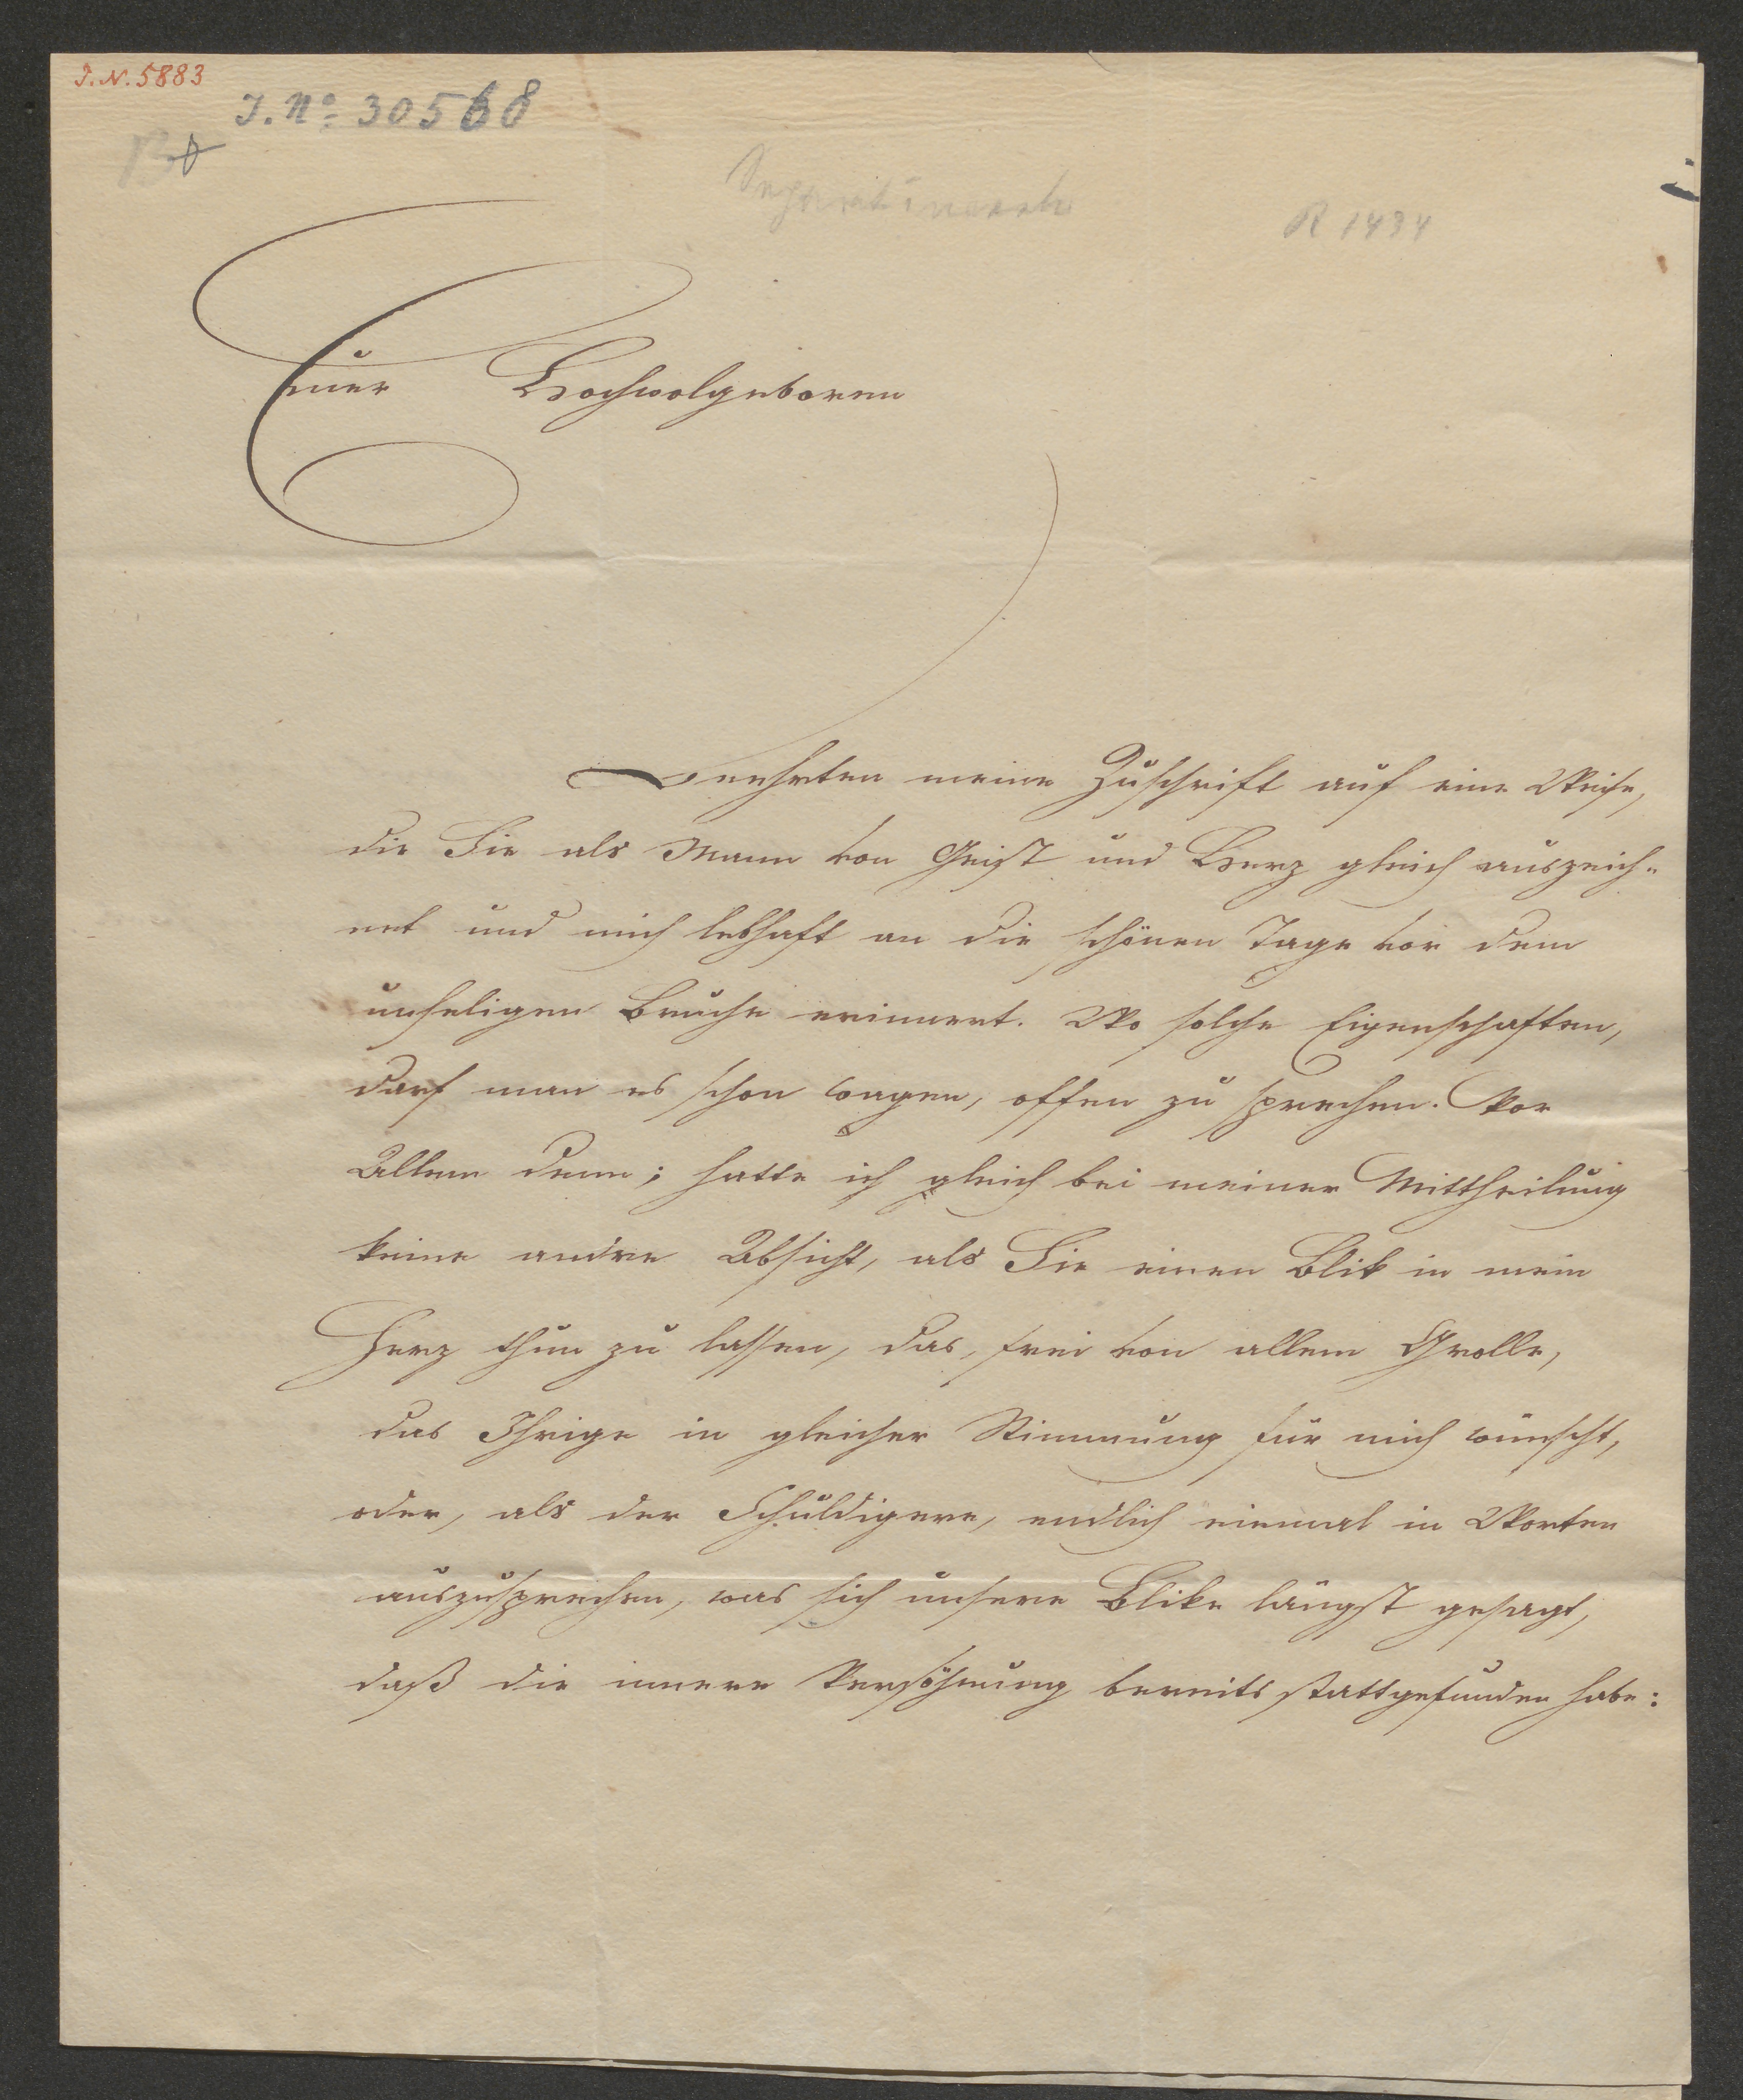 J. N. 5883
J. No: 30568
R 1494
Euer Hochwolgeboren
Beehrten meine Zuschrift auf eine Weise,
die Sie als Mann von Geist und Herz gleich auszeich-
net und mich lebhaft an die schönen Tage vor dem
unseligen Bruche erinnert. Wo solche Eigenschaften,
darf man es schon wagen, offen zu sprechen. Vor
Allem denn; hatte ich gleich bei meiner Mittheilung
keine andre Absicht, als Sie einen Blik in mein
Herz thun zu lassen, das, frei von allem Grolle,
das Ihrige in gleicher Stimmung für mich wünscht,
oder, als der Schuldigere, endlich einmal in Worten
auszusprechen, was sich unsere Blike längst gesagt,
daß die innere Versöhnung bereits stattgefunden habe: